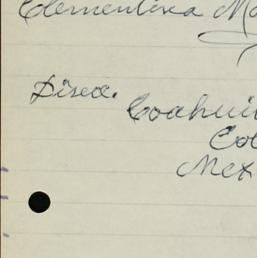 Clementina Ma
Direc.
Coahuil
Col
Mex